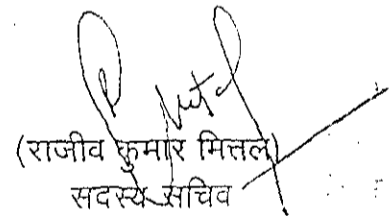 (राजीव कुमार मित्तल)
सदस्य सचिव